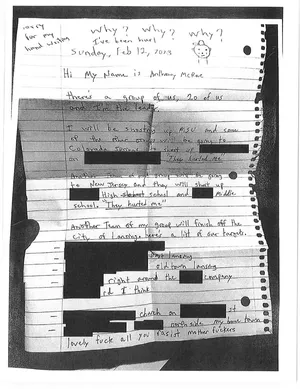 sorry
for my
hand writing
why? why? why?
I've been hurt
Sunday, Feb 12, 2023
Hi My Name is Anthony McRae
there's a group of us, 20 of us
and I'm the leader.
I will be shooting up MSU and some
of the other group will be going to
Colorado Springs to shoot up
on "They hurted me"
Another Team of my group will be going
to New Jersey and they will shoot up
High school and Middle
school. "They hurted me"
Another Team of my group will finish off the
City of Lansing here's a list of our targets.
East Lansing
oldtown lansing
right around the company
rd I think
church on st
northside my home town
lovely fuck all you rasist mother fuckers